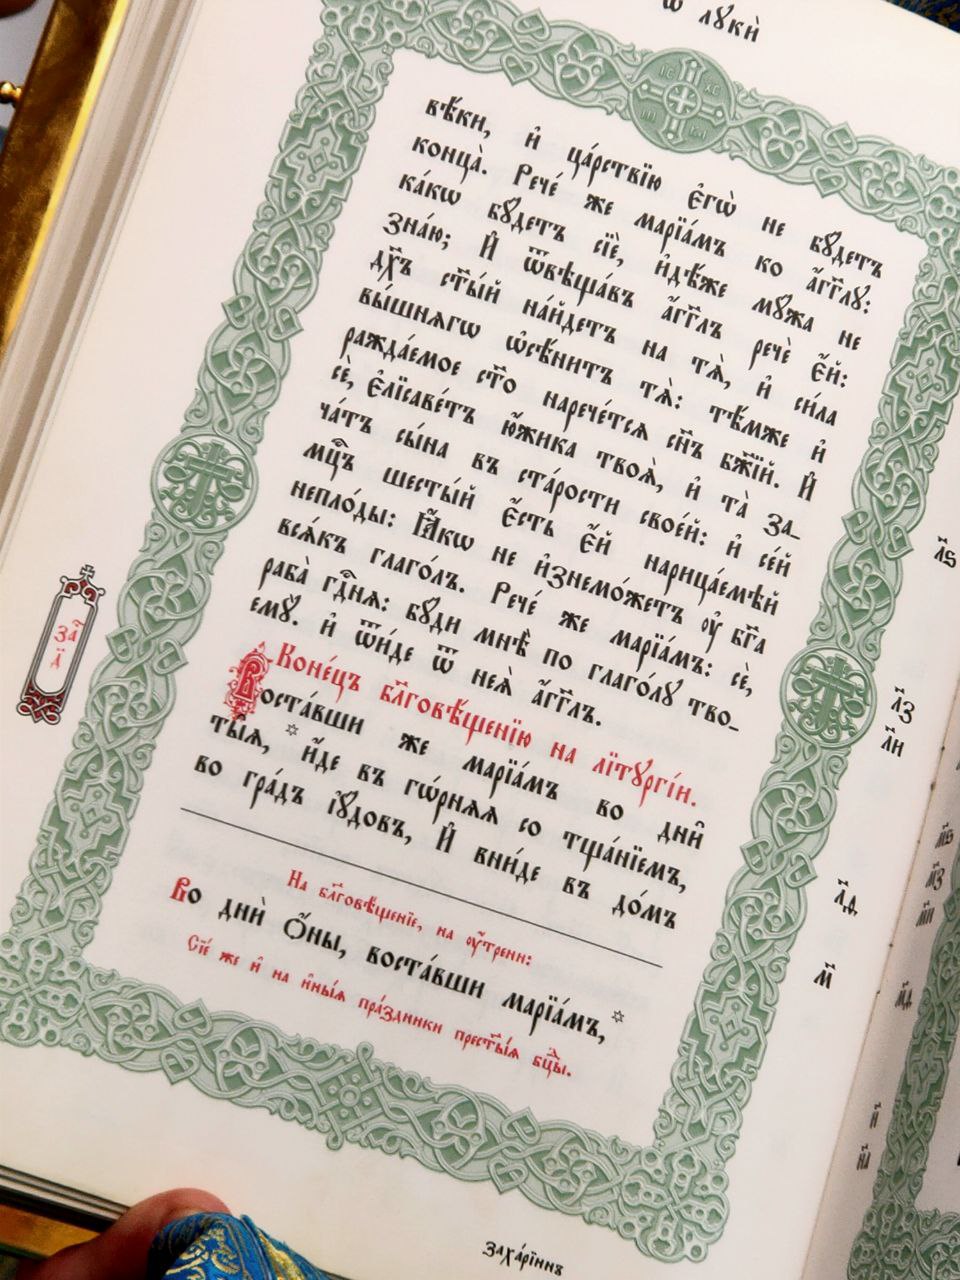 ѿ лꙋкѝ
вѣ́ки, и҆ ца́рствїю є҆гѡ̀ не бꙋ́детъ
конца̀. Рече́ же марїа́мъ ко а҆́гг҃лꙋ:
ка́кѡ бꙋ́детъ сїѐ, и҆дѣ́же мꙋ́жа не
зна́ю; И҆ ѿвѣща́въ а҆́гг҃лъ речѐ є҆́й:
дх҃ъ ст҃ы́й на́йдетъ на тѧ̀, и҆ си́ла
вы́шнѧгѡ ѡ҆сѣни́тъ тѧ̀: тѣ́мже и҆
ражда́емое ст҃о нарече́тсѧ сн҃ъ бж҃їй. И҆
сѐ, є҆лїсаве́тъ ю҆́жика твоѧ̀, и҆ та̀ за-
ча́тъ сы́на въ ста́рости свое́й: и҆ се́й
мц҃ъ шесты́й є҆́сть є҆́й нарица́емѣй
непло́ды: Ꙗ҆́кѡ не и҆знемо́жетъ ᲂу҆ бг҃а
всѧ́къ глаго́лъ. Рече́ же марїа́мъ: сѐ,
раба̀ гд҇нѧ: бꙋ́ди мнѣ̀ по глаго́лꙋ тво-
емꙋ̀. и҆ ѿи́де ѿ неѧ̀ а҆́гг҃лъ.
Коне́цъ бл҃говѣ́щенїю на лїтꙋргі́и.
Воста́вши же марїа́мъ во дни̑
ты̑ѧ, и҆́де въ гѡ́рнѧѧ со тща́нїемъ,
во гра́дъ і҆ꙋ́довъ, И҆ вни́де въ до́мъ
На бл҃говѣ́щенїе, на ᲂу҆́трени:
Во днѝ ѻ҆́ны, воста́вши марїа́мъ,
Сїе́ же и҆ на и҆ны̑ѧ пра́здники прест҃ы́ѧ бц҃ы.
заха́рїинъ
за҇
д҃
л҃ѕ
л҃з
л҃и
л҃д
м҃